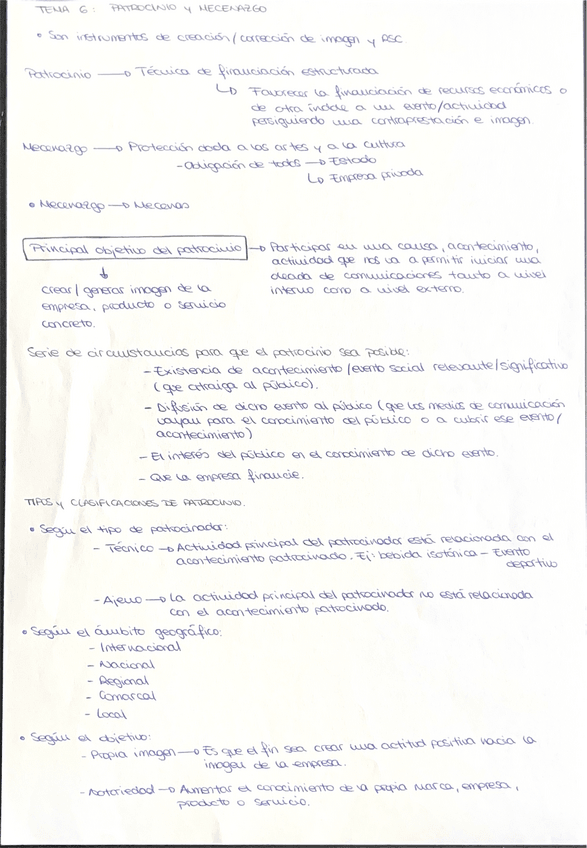 TEMA 6: PATROCINIO Y MECENAZGO
• Son instrumentos de creación/corrección de imagen y RSC.
Patrocinio → Técnica de financiación estructurada
↳ Favorecer la financiación de recursos económicos o
de otra índole a un evento/actividad
persiguiendo una contraprestación e imagen.
Mecenazgo → Protección dada a las artes y a la cultura
- Obligación de todos → Estado
↳ Empresa privada
• Mecenazgo → Mecenas
Principal objetivo del patrocinio → Participar en una causa, acontecimiento,
actividad que nos va a permitir iniciar una
oleada de comunicaciones tanto a nivel
interno como a nivel externo.
↓
crear/generar imagen de la
empresa, producto o servicio
concreto.
Serie de circunstancias para que el patrocinio sea posible:
- Existencia de acontecimiento/evento social relevante/significativo
(que atraiga al público).
- Difusión de dicho evento al público (que los medios de comunicación
vayan para el conocimiento del público o a cubrir ese evento/
acontecimiento)
- El interés del público en el conocimiento de dicho evento.
- Que la empresa financie.
TIPOS Y CLASIFICACIONES DE PATROCINIO.
• Según el tipo de patrocinador:
- Técnico → Actividad principal del patrocinador está relacionada con el
acontecimiento patrocinado. Ej: bebida isotónica - Evento
deportivo
- Ajeno → La actividad principal del patrocinador no está relacionada
con el acontecimiento patrocinado.
• Según el ámbito geográfico:
- Internacional
- Nacional
- Regional
- Comarcal
- Local
• Según el objetivo:
- Propia imagen → Es que el fin sea crear una actitud positiva hacia la
imagen de la empresa.
- Notoriedad → Aumentar el conocimiento de la propia marca, empresa,
producto o servicio.